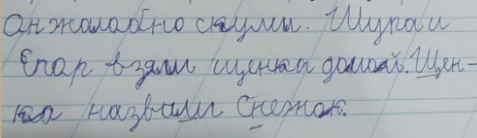 он жалобно скулил. Шура и
Егор взяли щенка домой. Щен-
ка назвали Снежок.